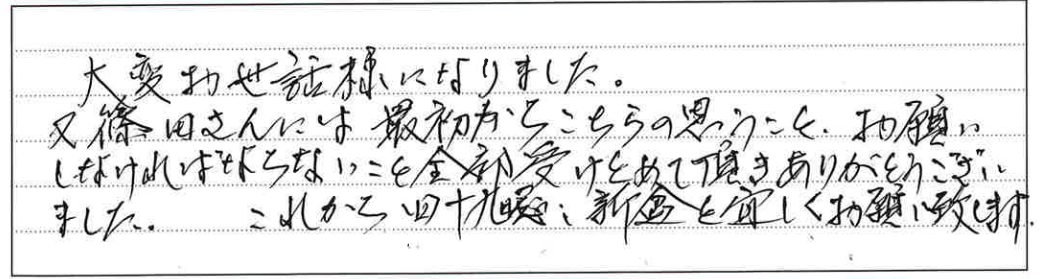 大変お世話様になりました。
又篠田さんには最初からこちらの思うこと、お願い
しなければならないこと全部受けとめて頂きありがとうござい
ました。 これから四十九日、新盆と宜しくお願い致します。